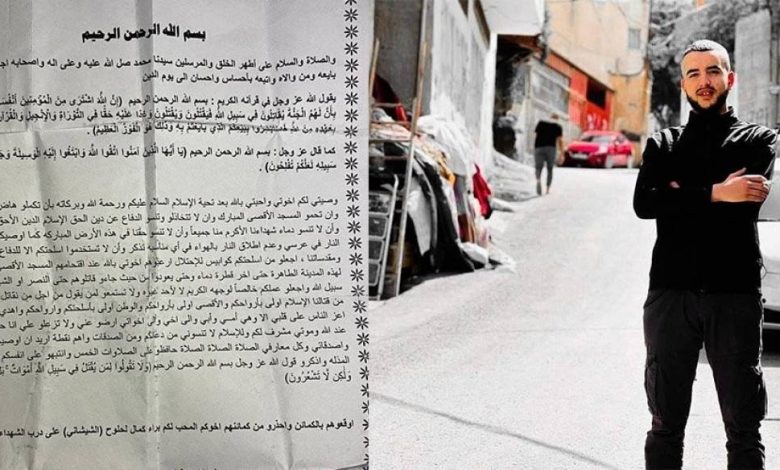 بسم الله الرحمن الرحيم
والصلاة والسلام على أطهر الخلق والمرسلين سيدنا محمد صل الله عليه وعلى اله واصحابه
بايعه ومن والاه واتبعه بأحساس واحسان الى يوم الدين
يقول الله عز وجل في قرآنه الكريم : بسم الله الرحمن الرحيم (إِنَّ اللَّهَ اشْتَرَى مِنَ الْمُؤْمِنِينَ
بِأَنَّ لَهُمُ الْجَنَّةَ يُقَاتِلُونَ فِي سَبِيلِ اللَّهِ فَيَقْتُلُونَ وَيُقْتَلُونَ وَعْدًا عَلَيْهِ حَقًّا فِي التَّوْرَاةِ وَالْإِنْجِيلِ
بِبَيْعِكُمُ الَّذِي بَايَعْتُمْ بِهِ وَذَلِكَ هُوَ الْفَوْزُ الْعَظِيمُ).
كما قال عز وجل : بسم الله الرحمن الرحيم (يَا أَيُّهَا الَّذِينَ آمَنُوا اتَّقُوا اللَّهَ وَابْتَغُوا إِلَيْهِ الْوَسِيلَةَ
سَبِيلِهِ لَعَلَّكُمْ تُفْلِحُونَ).
وصيتي لكم اخوتي واحبتي بالله بعد تحية الإسلام السلام عليكم ورحمة الله وبركاته بأن تكملو
وان تحمو المسجد الأقصى المبارك وان لا تتخاذلو وتنسو الدفاع عن دين الحق الإسلام الدين
وان لا تنسو شهداءنا الأكرم منا جميعاً وأن لا تنسو حقنا في هذه الأرض المباركه كما
النار في عرسي وعدم اطلاق النار بالهواء في أي مناسبه تذكر وأن لا تستخدموا اسلحتكم الا
ومقدساتنا ، اجعلو من اسلحتكم كوابيس للإحتلال ارعبوهم اخوتي بالله عند اقتحامهم المسجد
لهذه المدينة الطاهرة حتى اخر قطرة دماء وحتى يعودوا من حيث جاءو قاتلوهم حتى النصر او
سبيل الله واجعلو عملكم خالصاً لوجهه الكريم لا لأحد غيره
من قتالنا الإسلام اولى بأرواحكم والأقصى اولى بأرواحكم والوطن اولى بأسلحتكم وأرواحكم
اعز الناس على قلبي الا وهي أمسي وأبي والى اخي والى اخواتي ارضو عني ولا تزعلو علي
عند الله وموتي مشرف لكم وللإسلام لا تنسوني من دعائكم ومن الصدقات واهم نقطة أريد ان
واصدقائي وكل معارفي الصلاة الصلاة الصلاة حافظو على الصلاوات الخمس وانتبهو على
المذله واذكرو قول الله عز وجل بسم الله الرحمن الرحيم (وَلَا تَقُولُوا لِمَن يُقْتَلُ فِي سَبِيلِ اللَّهِ أَمْوَاتٌ
وَلَٰكِن لَّا تَشْعُرُونَ)
اوقعوهم بالكمائن واحذرو من كمائنهم اخوكم المحب لكم براء كمال لحلوح (الشيشاني) على درب